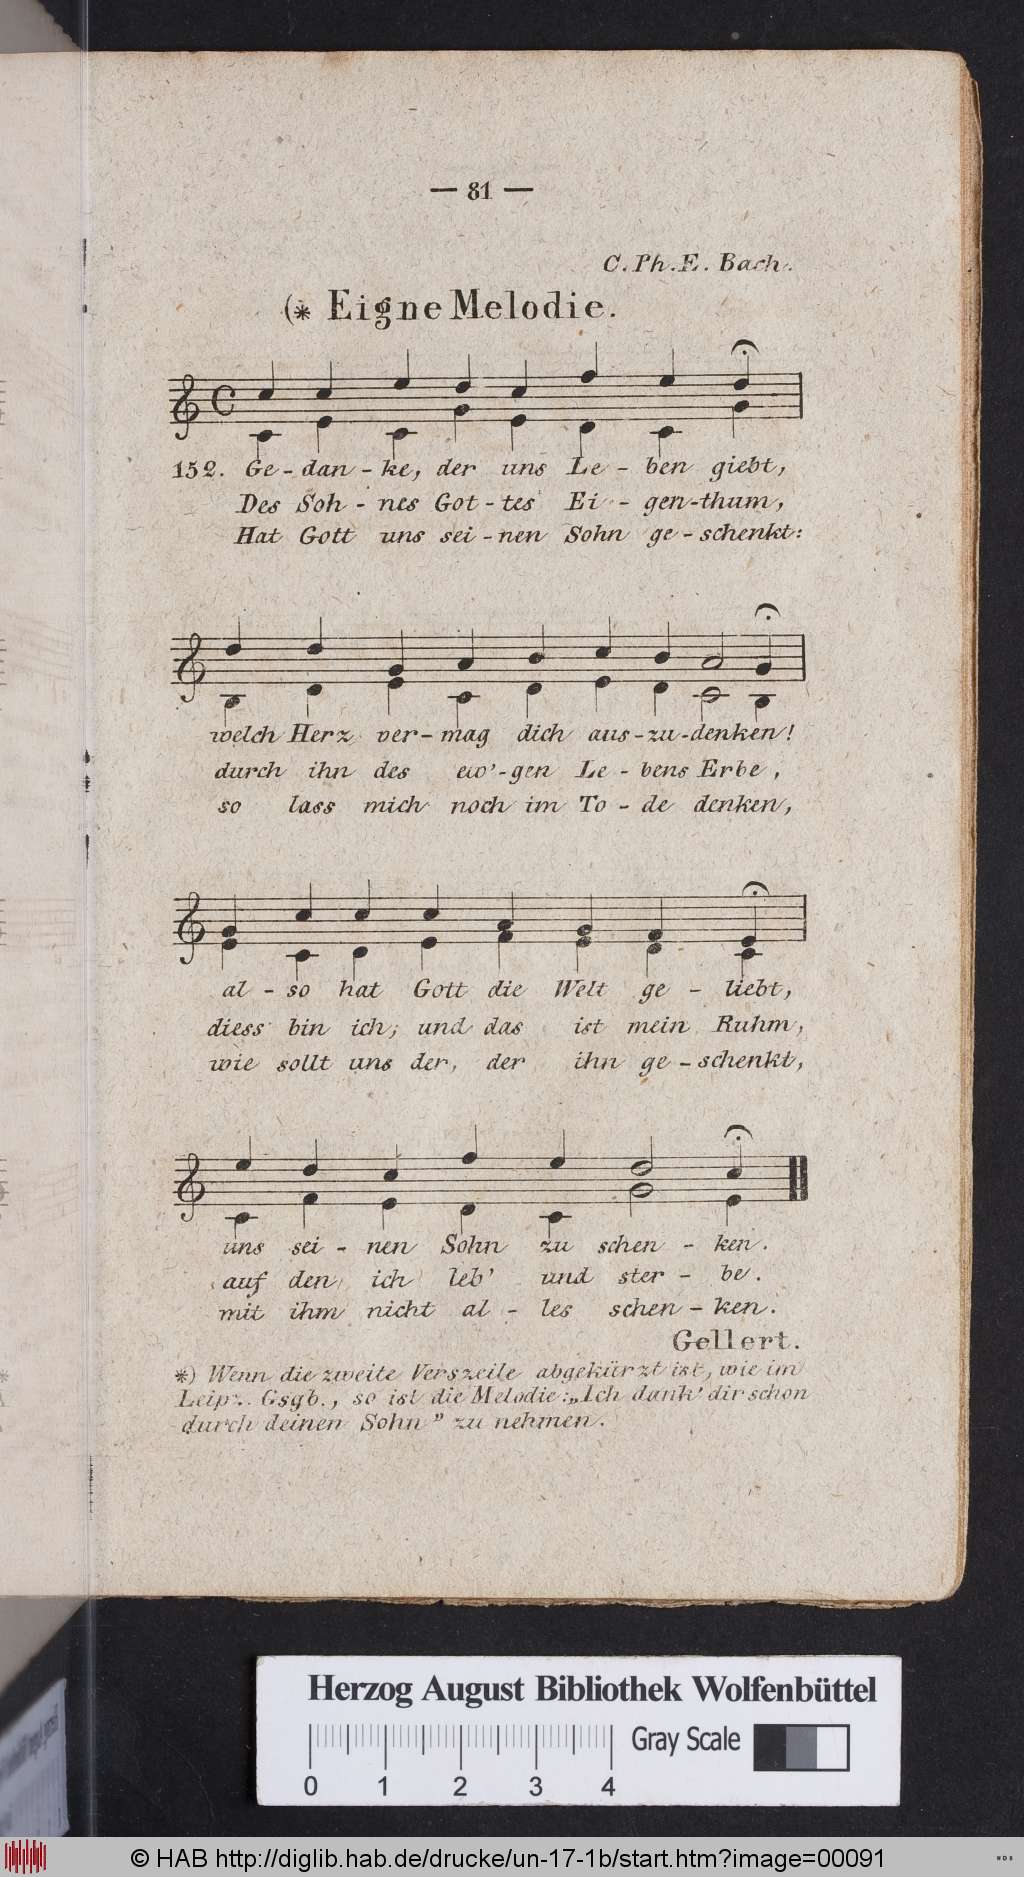 — 81 —
C. Ph. E. Bach.
(* Eigne Melodie.
152. Ge - dan - ke, der uns Le - ben giebt,
Des Soh - nes Got - tes Ei - gen-thum,
Hat Gott uns sei - nen Sohn ge - schenkt:
welch Herz ver - mag dich aus-zu-denken!
durch ihn des ew'-gen Le - bens Erbe,
so lass mich noch im To - de denken,
al - so hat Gott die Welt ge - liebt,
diess bin ich; und das ist mein Ruhm,
wie sollt uns der, der ihn ge - schenkt,
uns sei - nen Sohn zu schen - ken.
auf den ich leb' und ster - be.
mit ihm nicht al - les schen - ken.
Gellert.
*) Wenn die zweite Verszeile abgekürzt ist, wie im
Leipz. Gsgb., so ist die Melodie: „Ich dank' dir schon
durch deinen Sohn” zu nehmen.
Herzog August Bibliothek Wolfenbüttel
Gray Scale
0 1 2 3 4
© HAB http://diglib.hab.de/drucke/un-17-1b/start.htm?image=00091